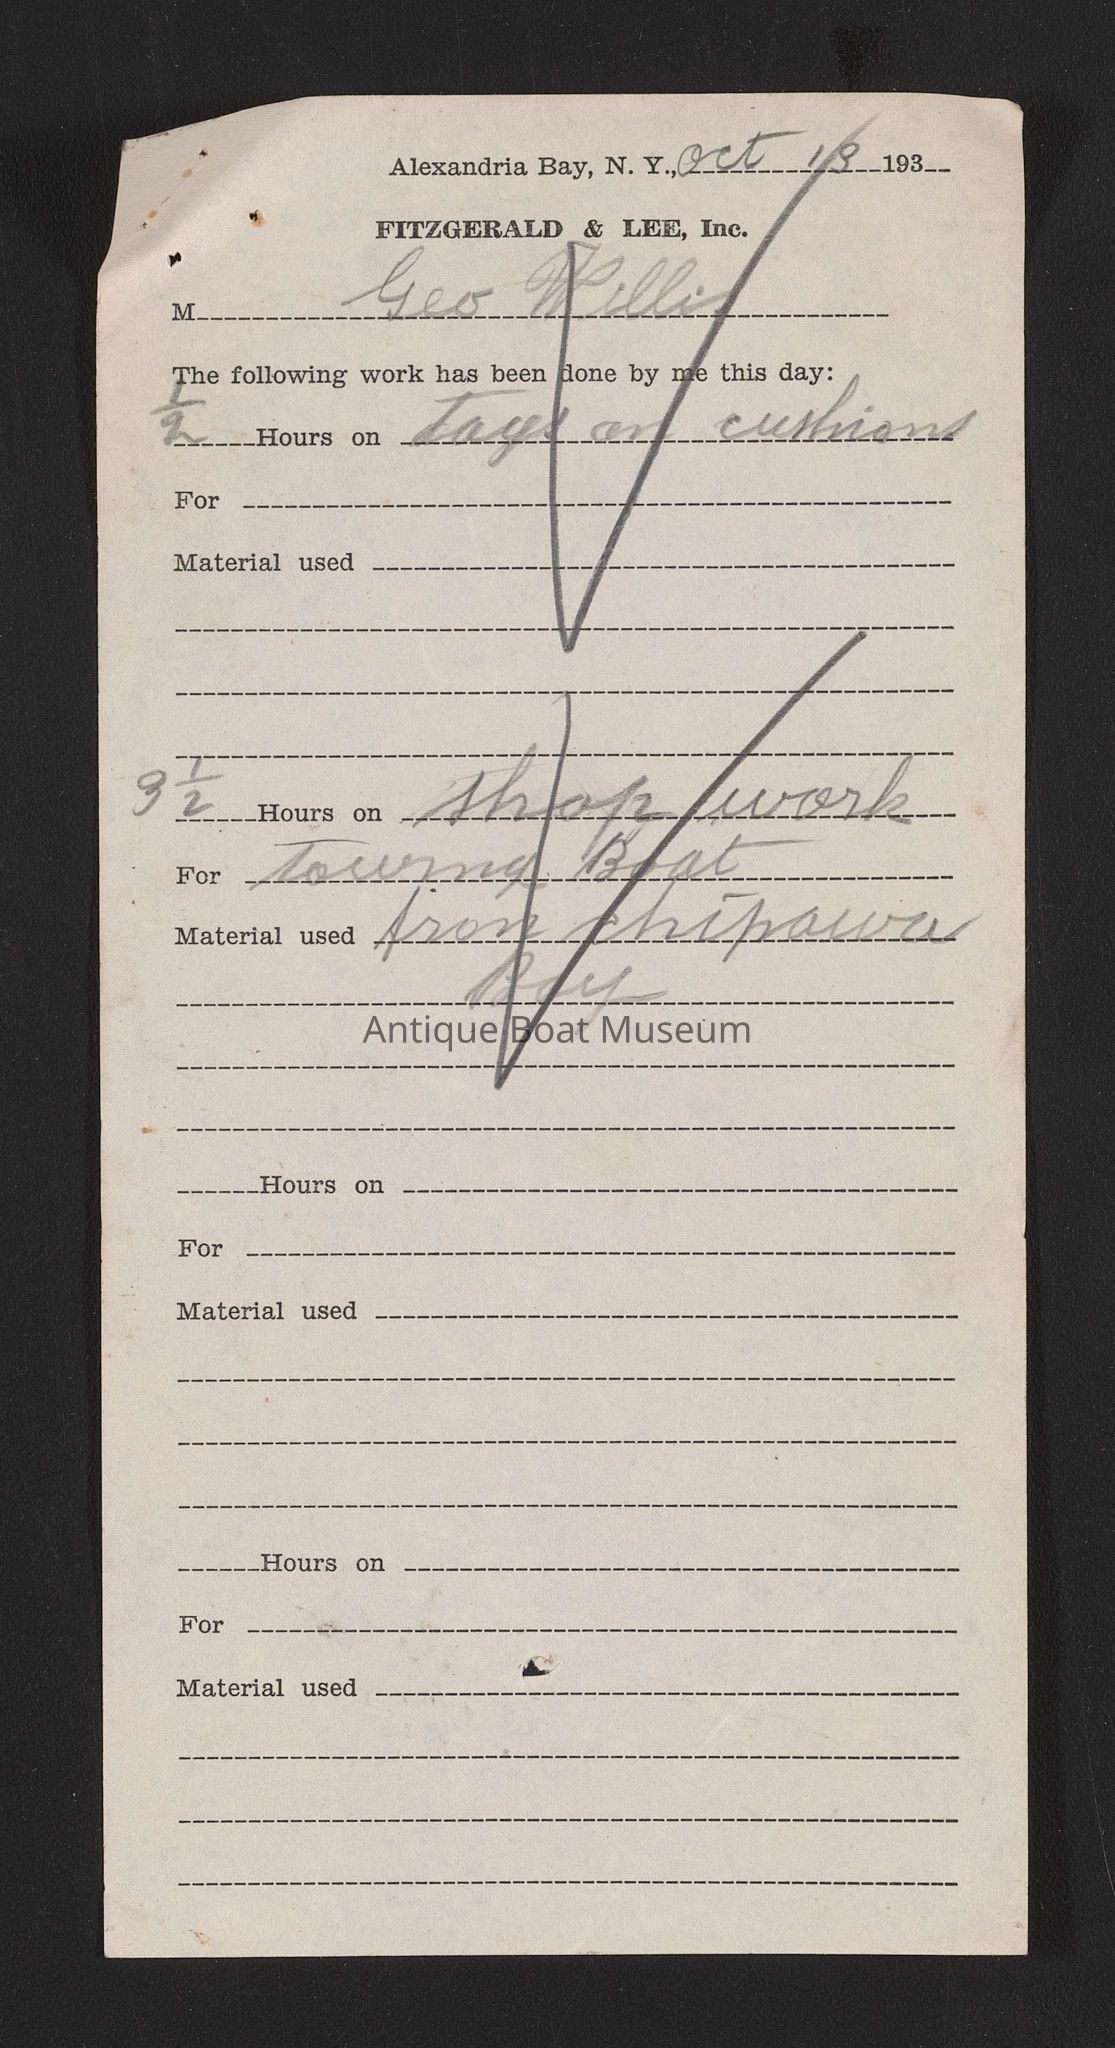 Alexandria Bay, N. Y., Oct 13 193
FITZGERALD & LEE, Inc.
M Geo Willis
The following work has been done by me this day:
1/2 Hours on Tags on cushions
For
Material used
3 1/2 Hours on shop work
For Towing Boat
Material used from chipawa
Bay
Antique Boat Museum
Hours on
For
Material used
Hours on
For
Material used